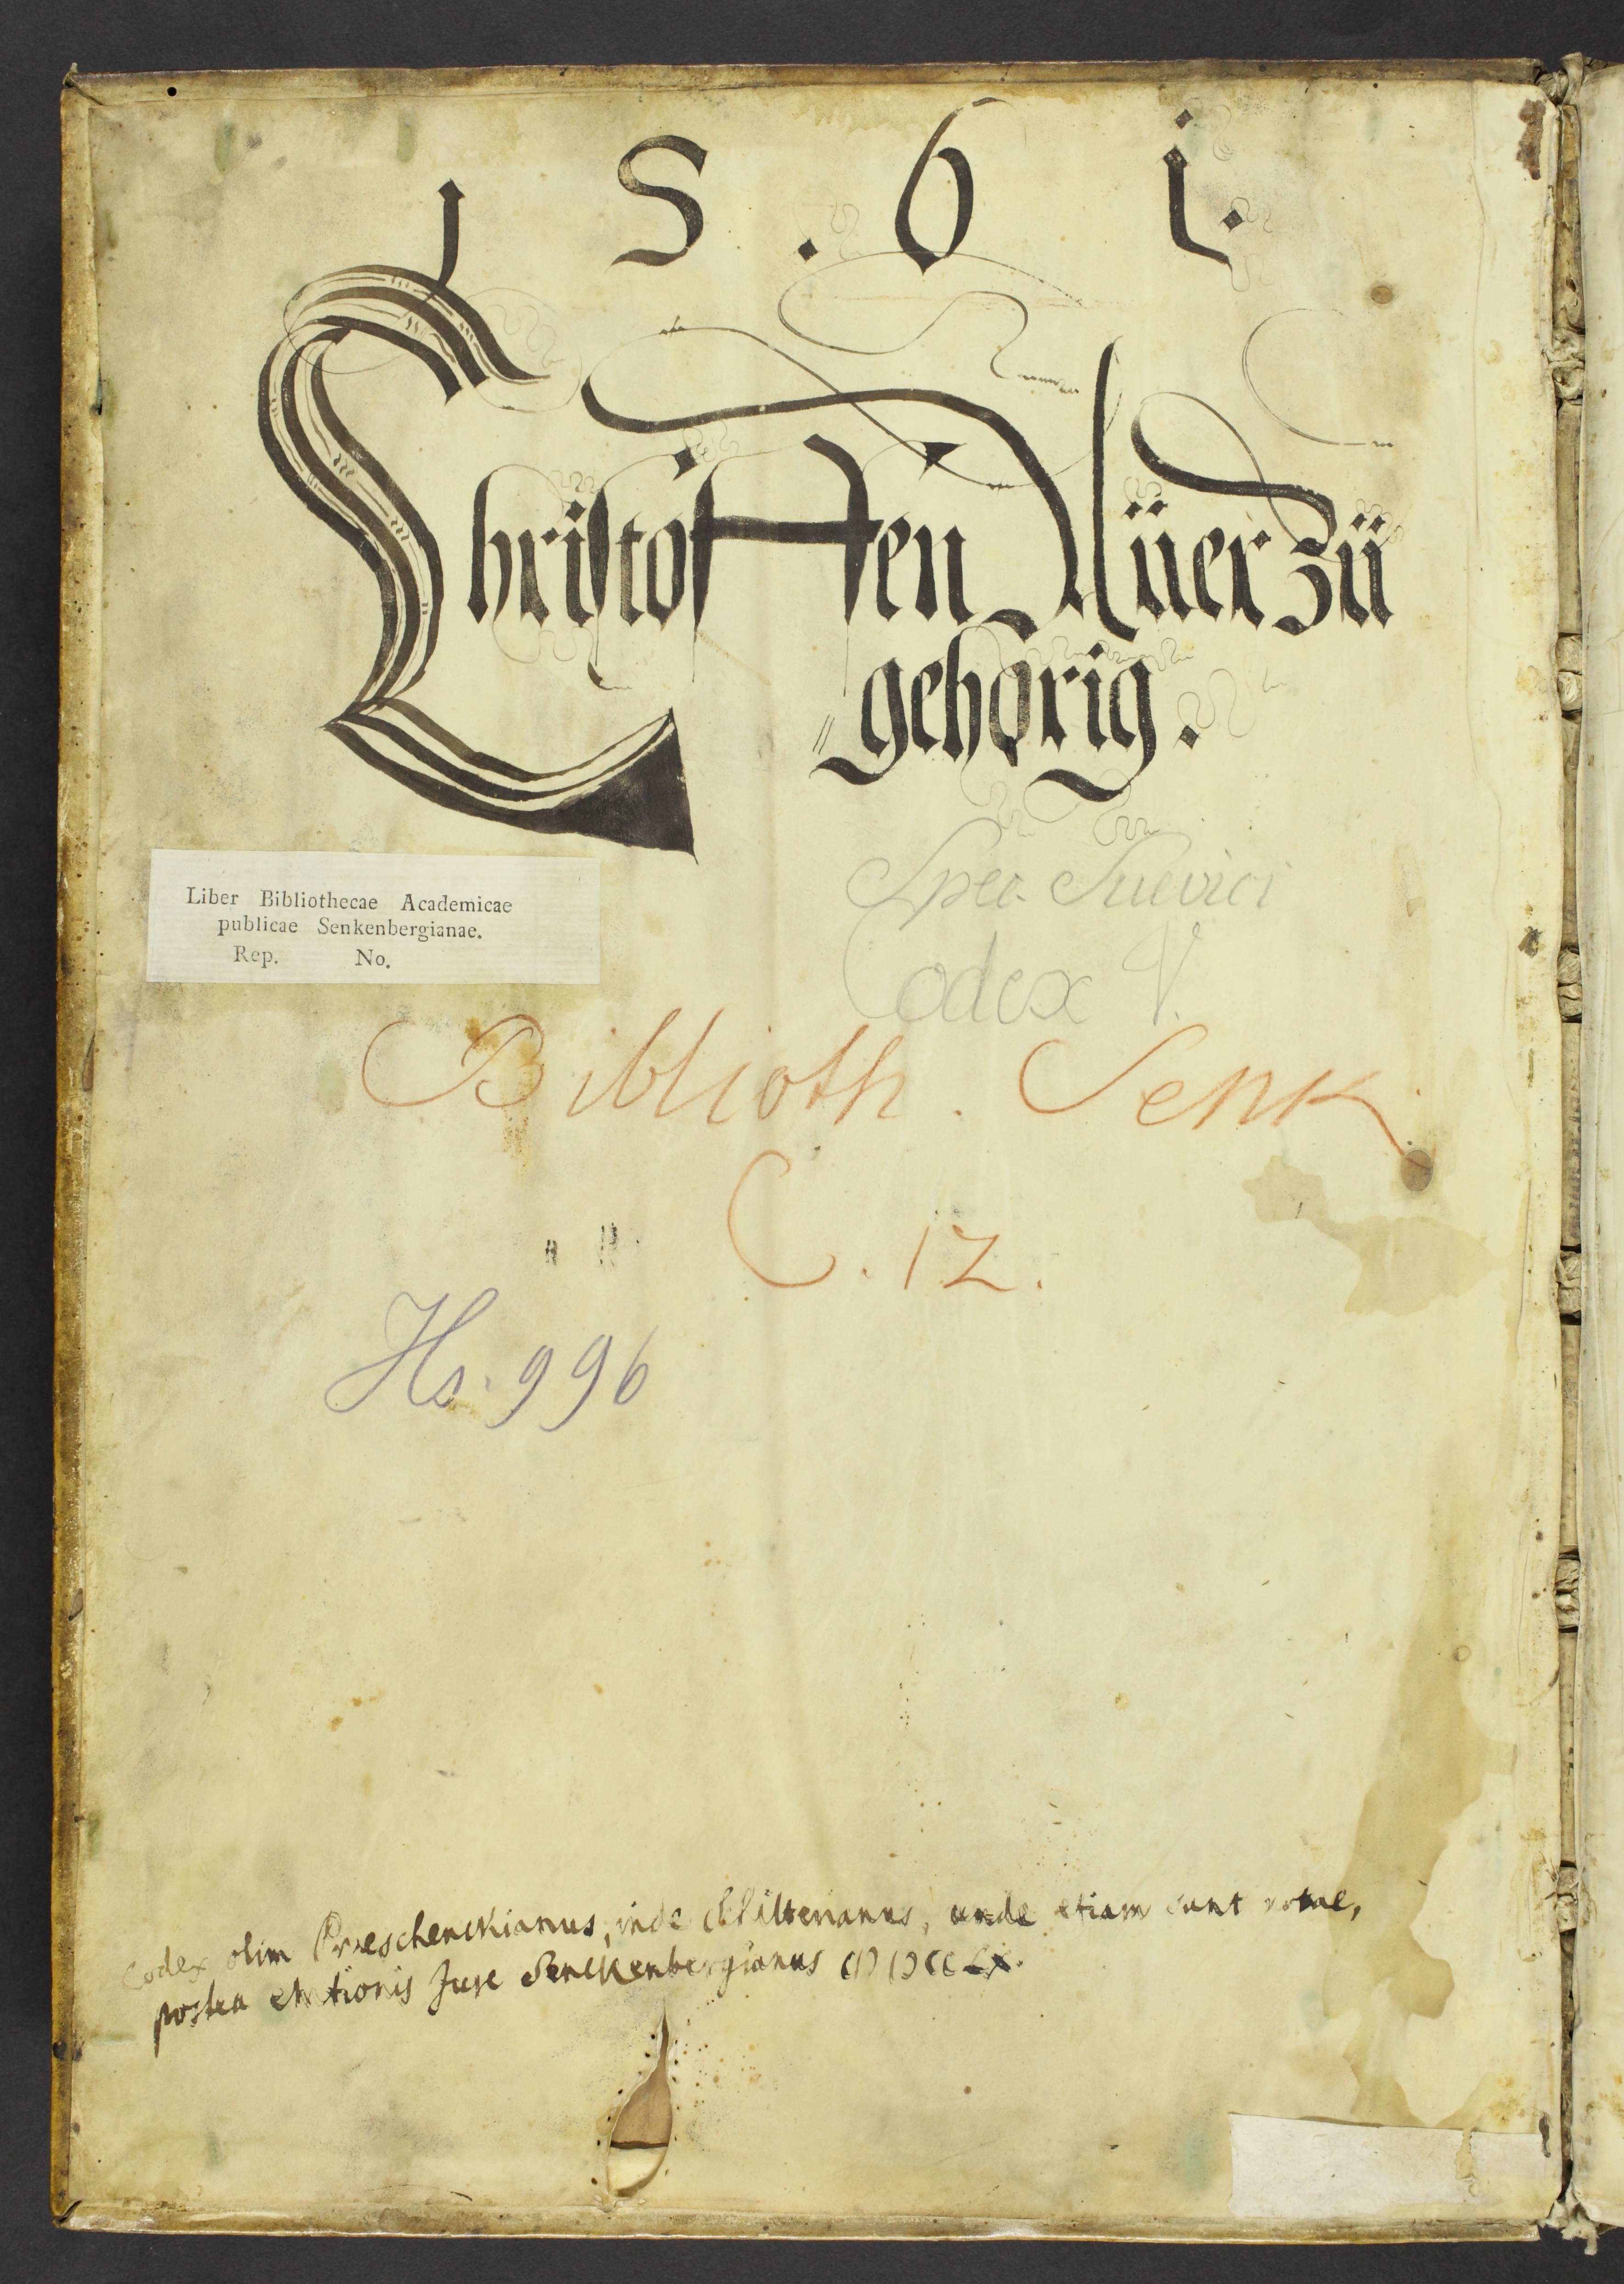 1 5 . 6 1.
Christoffen Müer zü
gehörig.
Liber Bibliothecae Academicae
publicae Senkenbergianae.
Rep. No.
Spec. Suevici
Codex V.
Biblioth. Senk.
C. 12.
Hs. 996
Codex olim inde Schilterianus, unde etiam sunt notae,
postea emtionis Jure Senckenbergianus CIƆ IƆCCLX.